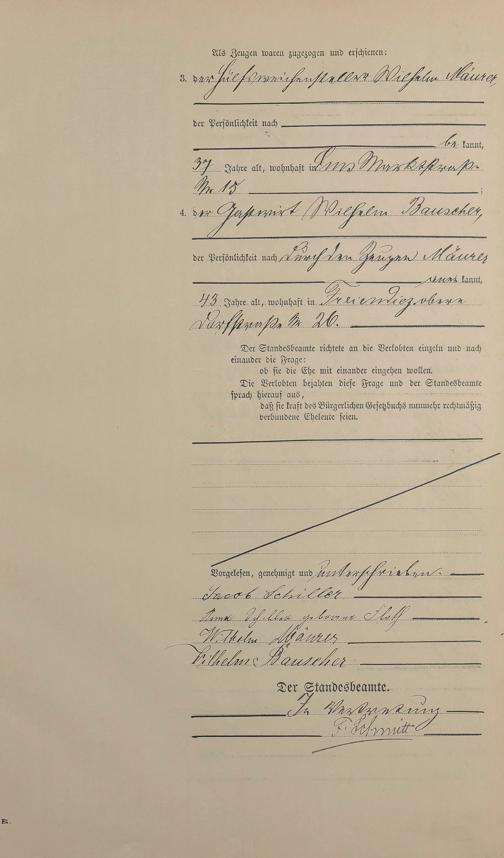 Als Zeugen waren zugezogen und erschienen:
3. der Hülfsweichensteller Wilhelm Mäurer,
der Persönlichkeit nach
be kannt,
37 Jahre alt, wohnhaft in Ems Marktstraße
No 15 ;
4. der Gastwirt Wilhelm Bauscher,
der Persönlichkeit nach durch den Zeugen Mäurer
kannt,
43 Jahre alt, wohnhaft in Freiendiez obere
Dorfstraße No 26.
Der Standesbeamte richtete an die Verlobten einzeln und nach
einander die Frage:
ob sie die Ehe mit einander eingehen wollen.
Die Verlobten bejahten diese Frage und der Standesbeamte
sprach hierauf aus,
daß sie kraft des Bürgerlichen Gesetzbuchs nunmehr rechtmäßig
verbundene Eheleute seien.
Vorgelesen, genehmigt und unterschrieben.
Jacob Schiller
Schiller geborene
Wilhelm Mäurer
Wilhelm Bauscher
Der Standesbeamte.
In Vertretung
F. Schmitt